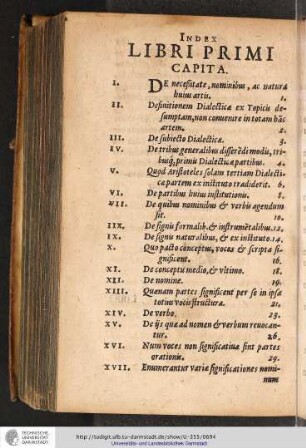 INDEX
LIBRI PRIMI
CAPITA.
I. DE necessitate, nominibus, ac natura
huius artis. 1.
II. Definitionem Dialecticæ ex Topicis de-
sumptam, non conuenire in totam hãc
artem. 2.
III. De subiecto Dialecticæ. 3.
IV. De tribus generalibus differẽdi modis, tri-
busq́; primis Dialecticæ partibus. 4.
V. Quod Aristoteles solam tertiam Dialecti-
cæ partem ex instituto tradiderit. 6.
VI. De partibus huius institutionis. 8.
VII. De quibus nominibus & verbis agendum
sit. 10.
IIX. De signis formalib. & instrumẽtalibus. 12.
IX. De signis naturalibus, & ex instituto. 14.
X. Quo pacto conceptus, voces & scripta si-
gnificent. 16.
XI. De conceptu medio, & vltimo. 18.
XII. De nomine. 19.
XIII. Quænam partes significent per se in ipsa
totius vocis structura. 21.
XIV. De verbo. 23.
XV. De ijs quæ ad nomen & verbum reuocan-
tur. 26.
XVI. Num voces non significatiuæ sint partes
orationis. 29.
XVII. Enumerantur variæ significationes nomi-
num
TECHNISCHE
UNIVERSITÄT
DARMSTADT
http://tudigit.ulb.tu-darmstadt.de/show/U-335/0694
Universitäts- und Landesbibliothek Darmstadt